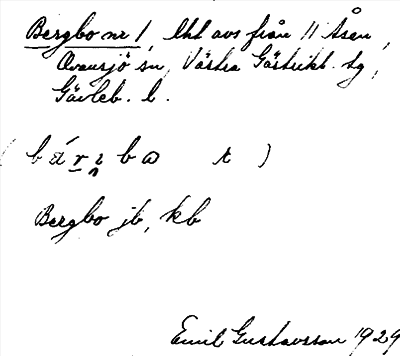 Bergbo nr 1, lht avs från 11 Åsen,
Ovansjö sn, Västra Gästrikl. tg,
Gävleb. l.
( bá r ɂ b ɷ t )
Bergbo jb, kb
Emil Gustavsson 1929